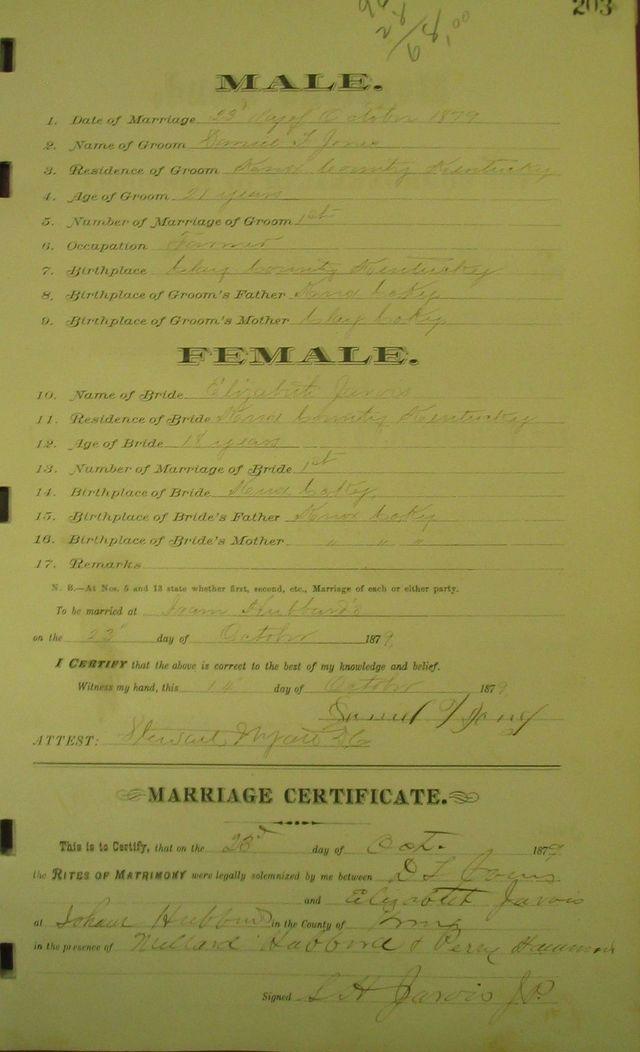 203
28
68.00
MALE.
1. Date of Marriage 23d day of October 1879
2. Name of Groom Samuel T Jones
3. Residence of Groom Knox County Kentucky
4. Age of Groom 21 years
5. Number of Marriage of Groom 1st
6. Occupation Farmer
7. Birthplace Clay County Kentucky
8. Birthplace of Groom's Father Knox Co Ky
9. Birthplace of Groom's Mother Clay Co Ky
FEMALE.
10. Name of Bride Elizabeth Jarvis
11. Residence of Bride Knox County Kentucky
12. Age of Bride 18 years
13. Number of Marriage of Bride 1st
14. Birthplace of Bride Knox Co Ky
15. Birthplace of Bride's Father Knox Co Ky
16. Birthplace of Bride's Mother " " "
17. Remarks
N. B.—At Nos. 5 and 13 state whether first, second, etc., Marriage of each or either party.
To be married at Hubbard's
on the 23d day of October 1879,
I CERTIFY that the above is correct to the best of my knowledge and belief.
Witness my hand, this day of October 1879,
Samuel T Jones
ATTEST: Stewart
MARRIAGE CERTIFICATE.
This is to Certify, that on the 23d day of Oct. 1879
the RITES OF MATRIMONY were legally solemnized by me between
and Elizabeth Jarvis
at Hubbard in the County of Knox
in the presence of Millard Hubbard & Perry Hammons
Signed S H Jarvis J.P.